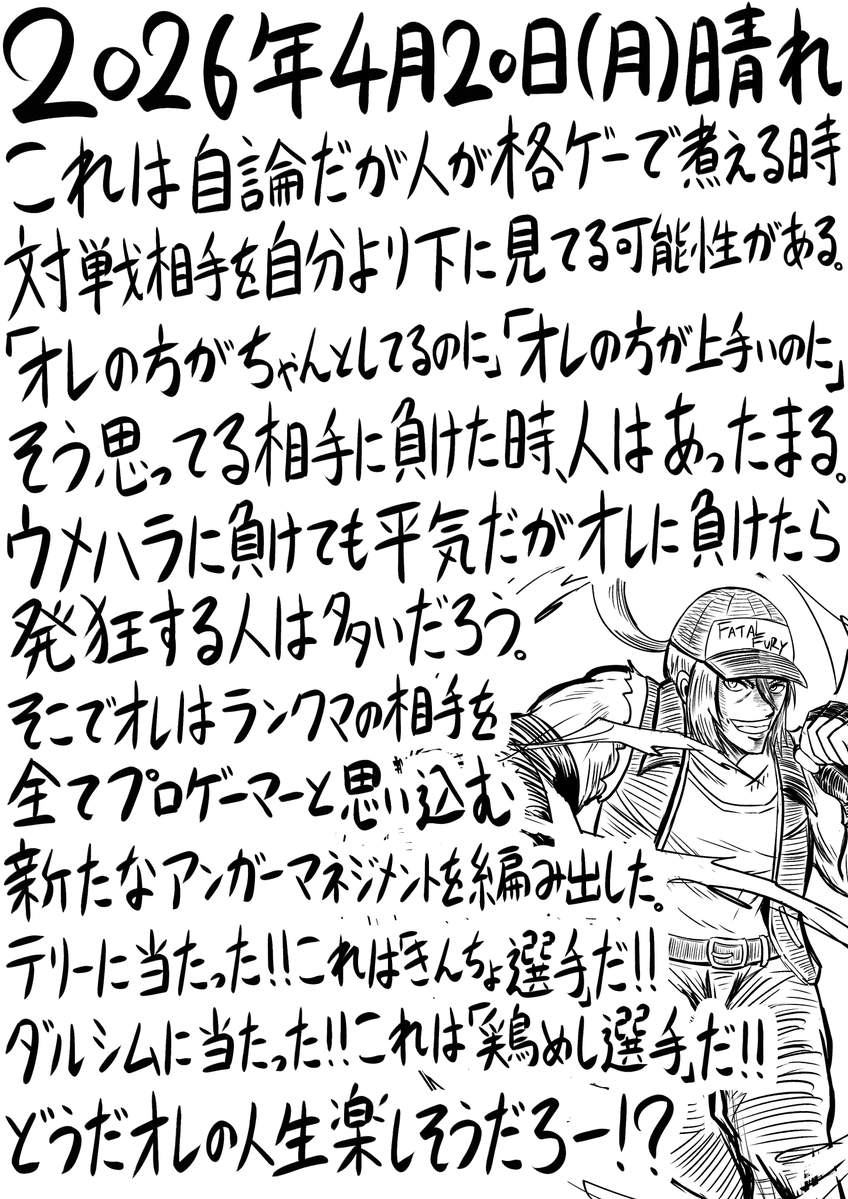 2026年4月20日(月)晴れ
これは自論だが人が格ゲーで煮える時
対戦相手を自分より下に見てる可能性がある。
「オレの方がちゃんとしてるのに」「オレの方が上手いのに」
そう思ってる相手に負けた時、人はあったまる。
ウメハラに負けても平気だがオレに負けたら
発狂する人は多いだろう。
FATAL FURY
そこでオレはランクマの相手を
全てプロゲーマーと思い込む
新たなアンガーマネジメントを編み出した。
テリーに当たった!!これは「きんちょ選手」だ!!
ダルシムに当たった!!これは「鶏めし選手」だ!!
どうだオレの人生楽しそうだろー!?